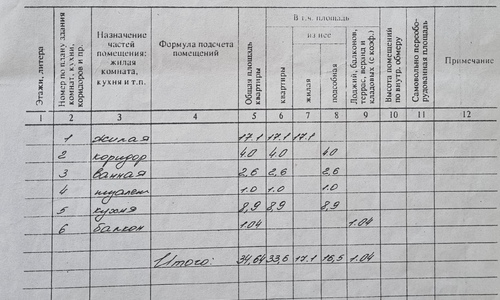 Этажи, литера
Номер по плану здания комнат, кухни, коридоров и пр.
Назначение частей помещения: жилая комната, кухня и т.п.
Формула подсчета помещений
Общая площадь квартиры
В т.ч. площадь
квартиры
из нее
жилая
подсобная
Лоджий, балконов, террас, веранд и кладовых (с коэф.)
Высота помещений по внутр. обмеру
Самовольно переоборудованная площадь
Примечание
1 2 3 4 5 6 7 8 9 10 11 12
1 жилая 17.1 17.1 17.1
2 коридор 4.0 4.0 4.0
3 ванная 2,6 2,6 2,6
4 туалет 1.0 1.0 1.0
5 кухня 8,9 8,9 8,9
6 балкон 1.04 1.04
Итого: 34,64 33,6 17.1 16,5 1.04